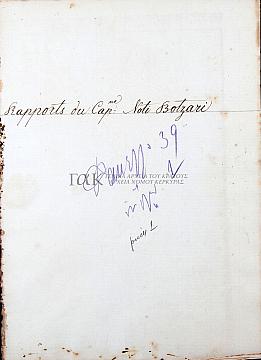 Rapports du Cap.ne Noti Botzari
Φάκελλος 39
ΓΑΚ ΓΕΝΙΚΑ ΑΡΧΕΙΑ ΤΟΥ ΚΡΑΤΟΥΣ
ΑΡΧΕΙΑ ΝΟΜΟΥ ΚΕΡΚΥΡΑΣ